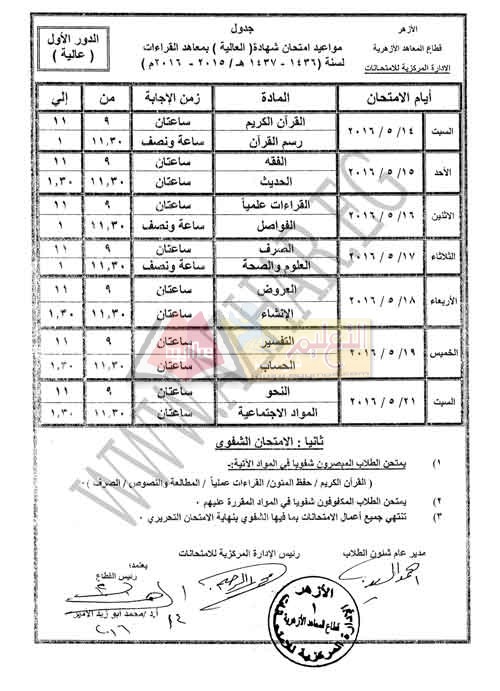 الأزهر
قطاع المعاهد الأزهرية
الإدارة المركزية للامتحانات
جدول
مواعيد امتحان شهادة( العالية ) بمعاهد القراءات
لسنة (١٤٣٦ - ١٤٣٧ هـ / ٢٠١٥ - ٢٠١٦م )
الدور الأول
( عالية )
أيام الامتحان المادة زمن الإجابة من إلي
السبت ١٤ / ٥ / ٢٠١٦ القرآن الكريم ساعتان ٩ ١١
رسم القرآن ساعة ونصف ١١,٣٠ ١
الأحد ١٥ / ٥ / ٢٠١٦ الفقه ساعتان ٩ ١١
الحديث ساعتان ١١,٣٠ ١,٣٠
الاثنين ١٦ / ٥ / ٢٠١٦ القراءات علمياً ساعتان ٩ ١١
الفواصل ساعة ونصف ١١,٣٠ ١
الثلاثاء ١٧ / ٥ / ٢٠١٦ الصرف ساعتان ٩ ١١
العلوم والصحة ساعة ونصف ١١,٣٠ ١
الأربعاء ١٨ / ٥ / ٢٠١٦ العروض ساعتان ٩ ١١
الإنشاء ساعتان ١١,٣٠ ١,٣٠
الخميس ١٩ / ٥ / ٢٠١٦ التفسير ساعتان ٩ ١١
الحساب ساعتان ١١,٣٠ ١,٣٠
السبت ٢١ / ٥ / ٢٠١٦ النحو ساعتان ٩ ١١
المواد الاجتماعية ساعتان ١١,٣٠ ١,٣٠
ثانيا : الامتحان الشفوى
١) يمتحن الطلاب المبصرون شفويا في المواد الآتية:-
( القرآن الكريم / حفظ المتون/ القراءات عملياً / المطالعة والنصوص / الصرف ) .
٢) يمتحن الطلاب المكفوفون شفويا في المواد المقررة عليهم .
٣) تنتهي جميع أعمال الامتحانات بما فيها الشفوي بنهاية الامتحان التحريري .
مدير عام شئون الطلاب
رئيس الإدارة المركزية للامتحانات
يعتمد؛
رئيس القطاع
أ.د/محمد أبو زيد الأمير
الأزهر
١
قطاع المعاهد الأزهرية
WWW.AZHAR.EG